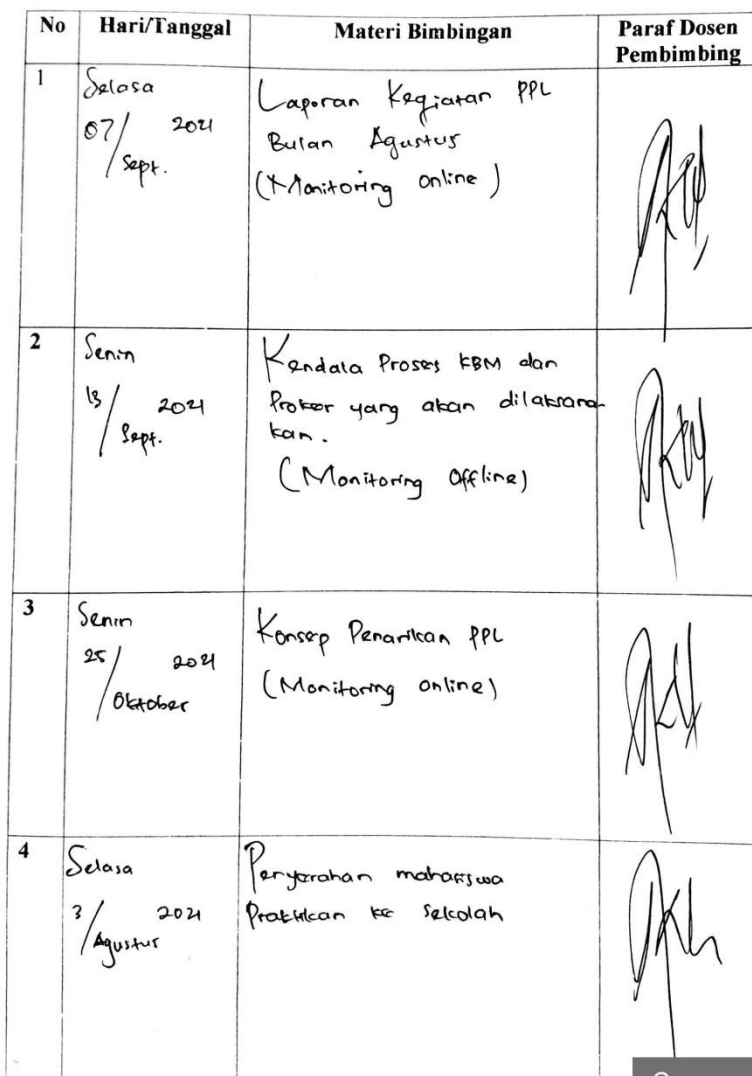 No Hari/Tanggal Materi Bimbingan Paraf Dosen
Pembimbing
1 Selasa
07/ Sept. 2021
Laporan Kegiatan PPL
Bulan Agustus
(Monitoring online)
2 Senin
13/ Sept. 2021
Kendala Proses KBM dan
Proker yang akan dilaksana-
kan.
(Monitoring Offline)
3 Senin
25/ Oktober 2021
Konsep Penarikan PPL
(Monitoring online)
4 Selasa
3/ Agustus 2021
Penyerahan mahasiswa
Praktikan ke Sekolah